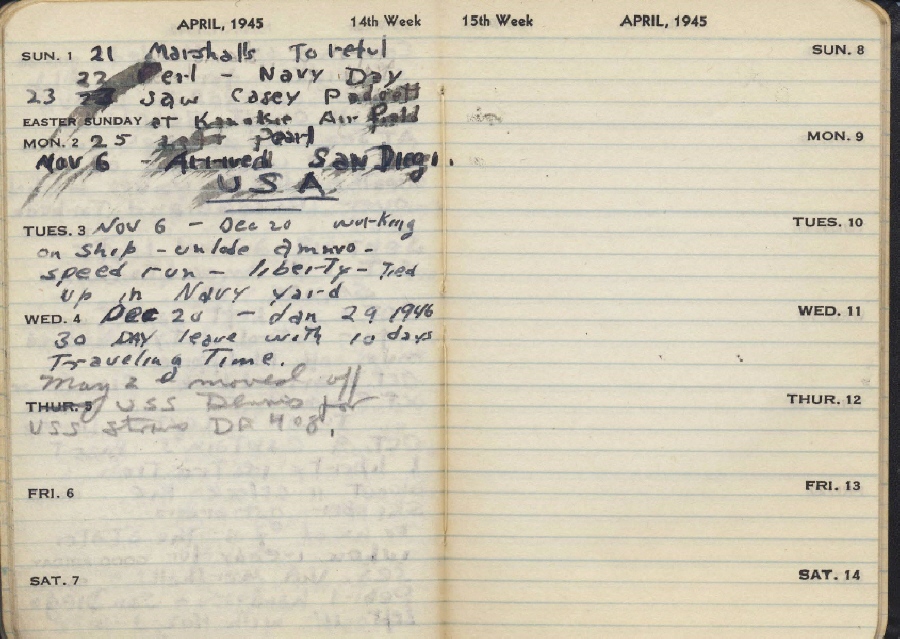 APRIL, 1945 14th Week
SUN. 1 21 Marshalls To reful
22 Perl - Navy Day
23 saw Casey
EASTER SUNDAY at Air field
MON. 2 25 Left Pearl
Nov 6 - Arrived San Diego.
USA
TUES. 3 Nov 6 - Dec 20 working
on ship - unlode ammo -
speed run - liberty - Tied
up in Navy yard
WED. 4 Dec 20 - Jan 29 1946
30 DAY leave with 10 days
Traveling Time.
May 2 moved off
THUR. 5 USS Dennis for
USS
FRI. 6
SAT. 7
15th Week APRIL, 1945
SUN. 8
MON. 9
TUES. 10
WED. 11
THUR. 12
FRI. 13
SAT. 14